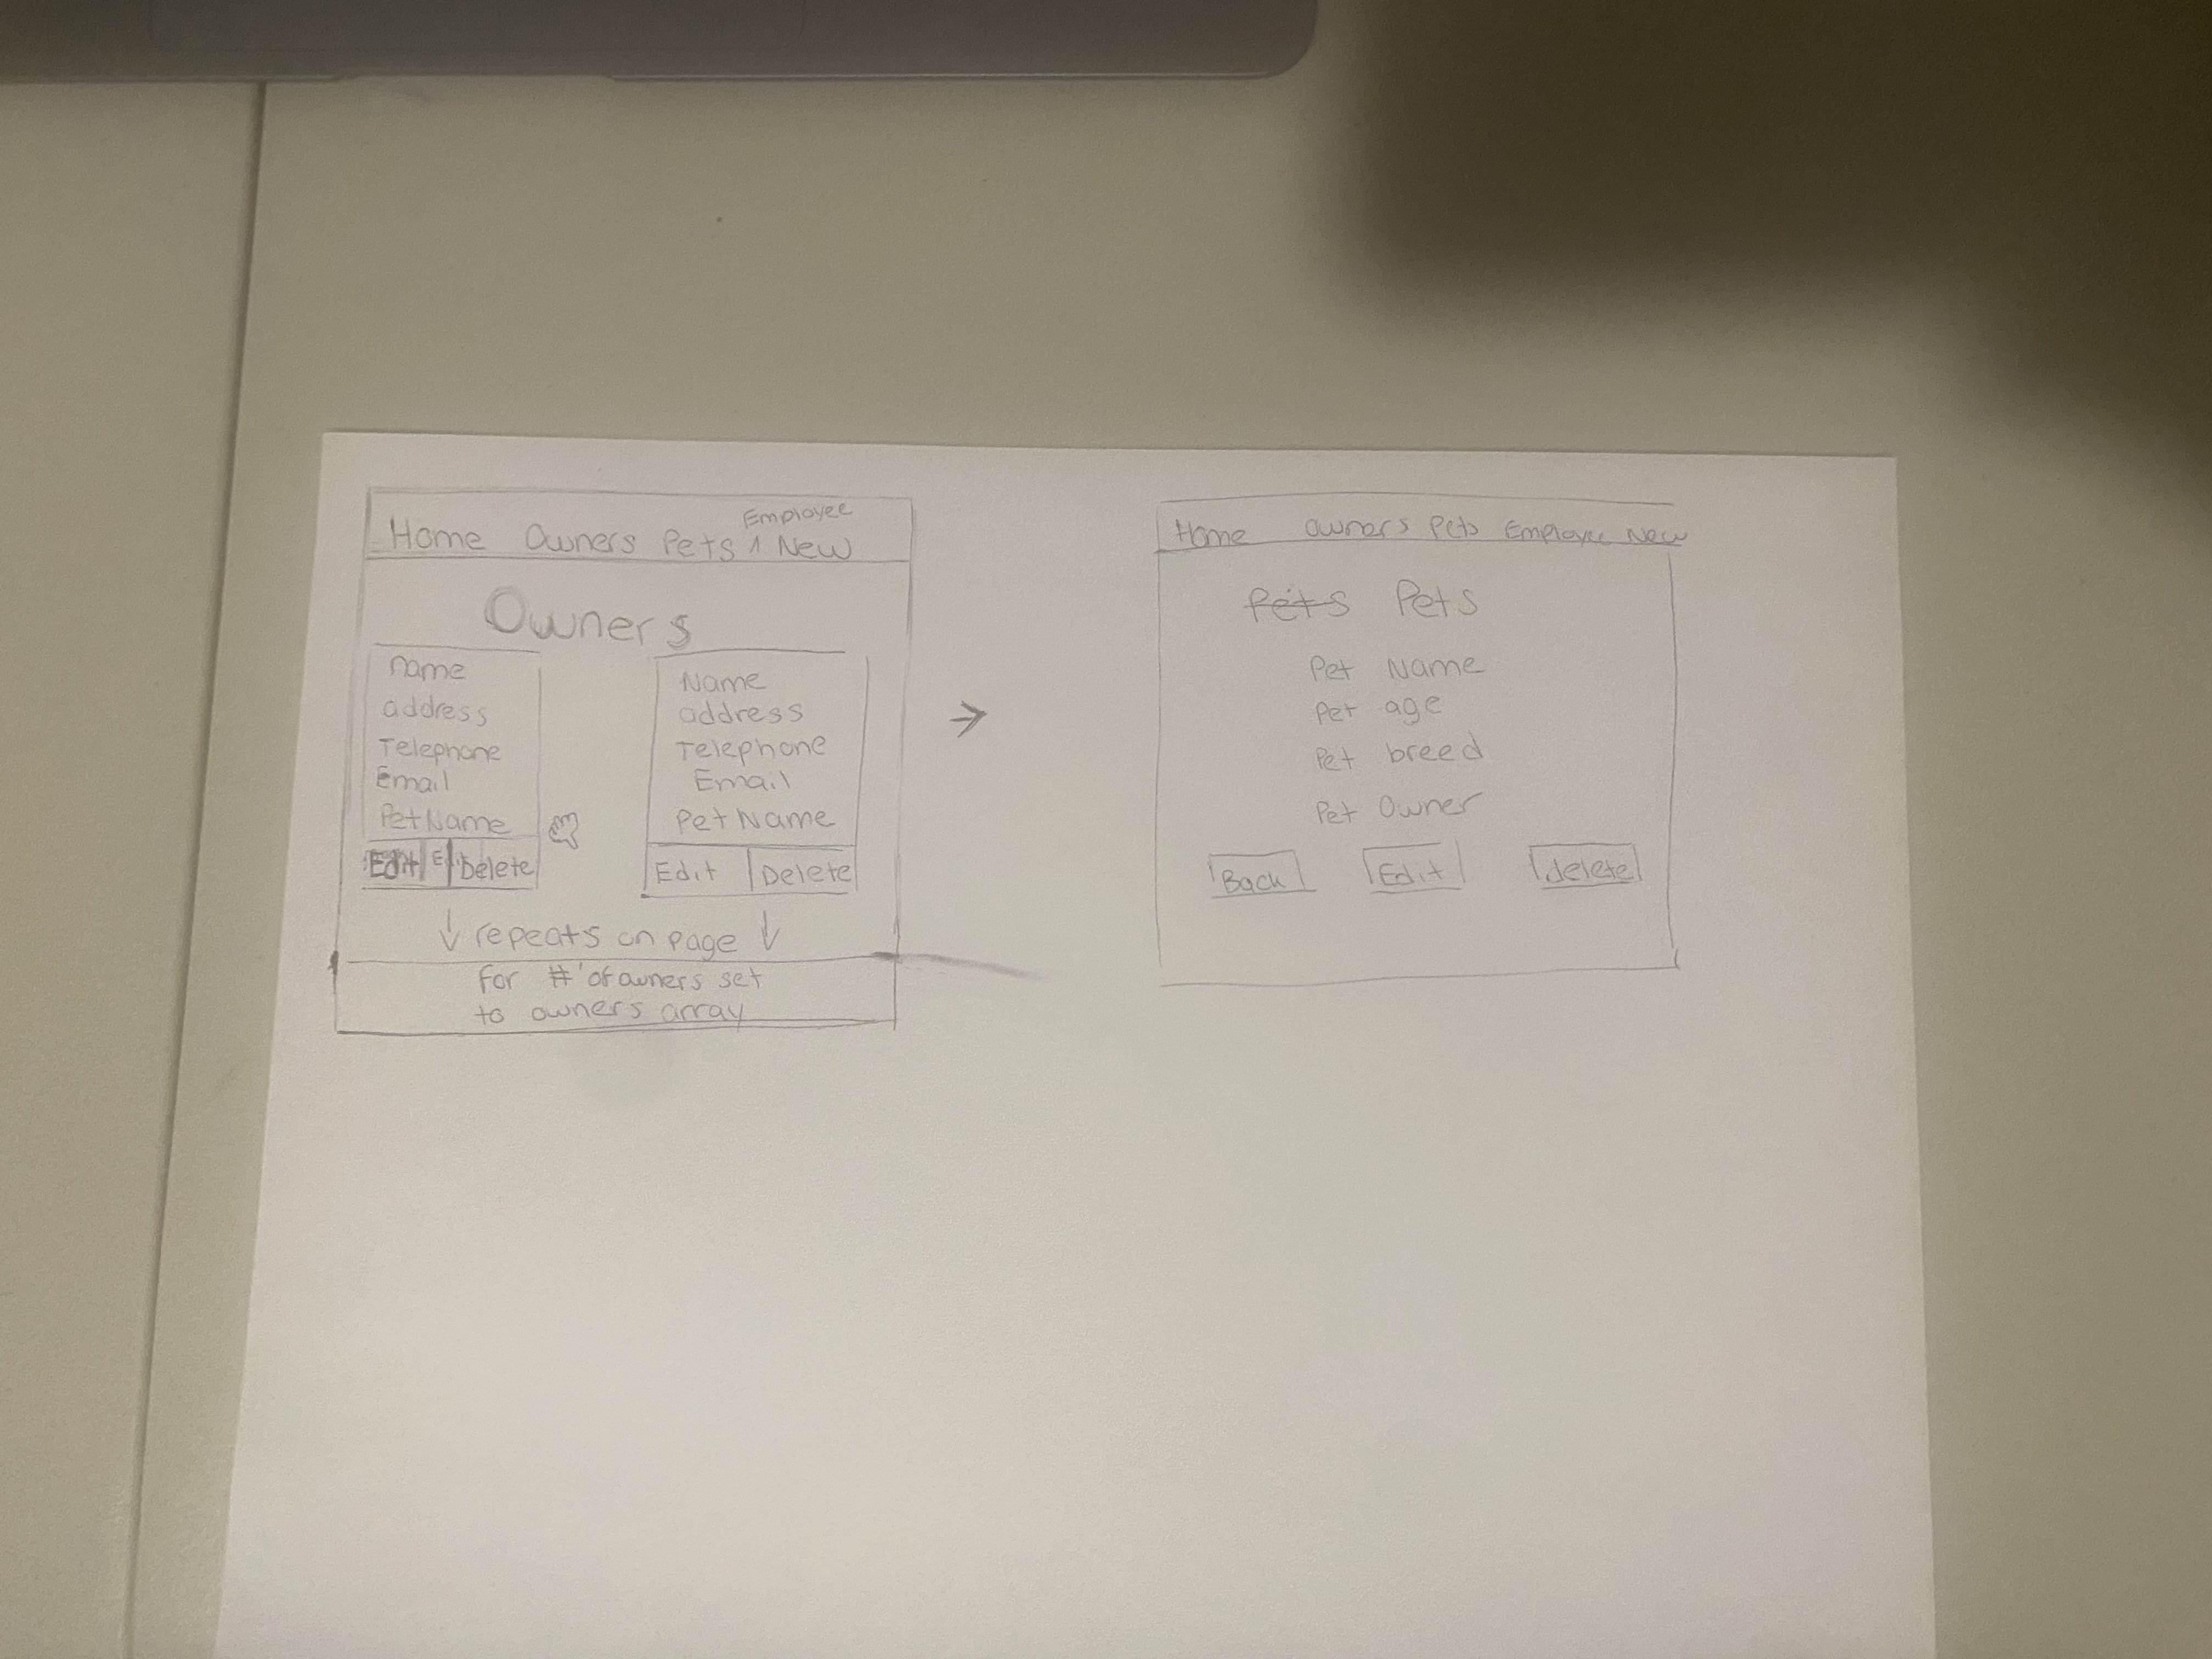 Employee
Home Owners Pets ^ New
Owners
name
address
Telephone
Email
Pet Name
Edit E Delete
Name
address
Telephone
Email
Pet Name
Edit Delete
↓ repeats on page ↓
for # of owners set
to owners array
→
Home Owners Pets Employee New
Pets Pets
Pet Name
Pet age
Pet breed
Pet Owner
Back Edit delete